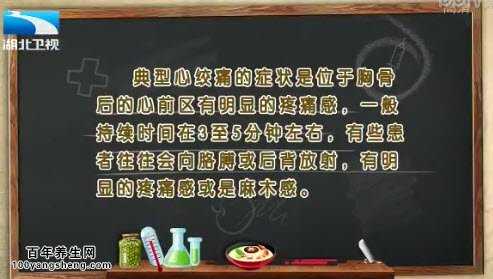 湖北卫视
典型心绞痛的症状是位于胸骨
后的心前区有明显的疼痛感，一般
持续时间在3至5分钟左右，有些患
者往往会向胳膊或后背放射，有明
显的疼痛感或是麻木感。
百年养生网
100yangsheng.com